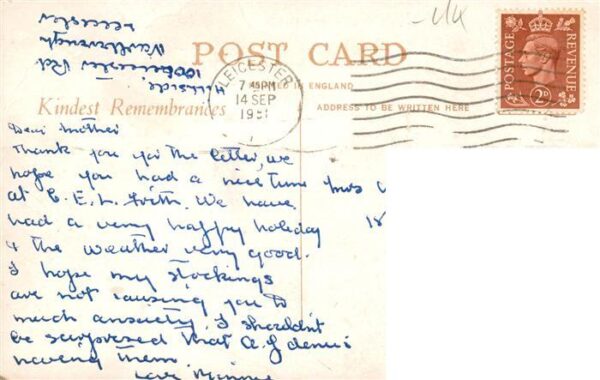 Hillside,
100 Leicester Rd
Narborough
Leicester
- U/K
POST CARD
PRINTED IN ENGLAND
Kindest Remembrances
ADDRESS TO BE WRITTEN HERE
LEICESTER
7 PM
14 SEP
1951
POSTAGE REVENUE
2D
Dear Mother
Thank you for the letter, we
hope you had a nice time
at C.E.L. with. We have
had a very happy holiday
& the weather very good.
I hope my stockings
are not causing you to
much anxiety. I shouldn't
be surprised that A.G denies
having them.
Love Minnie
Mrs
18